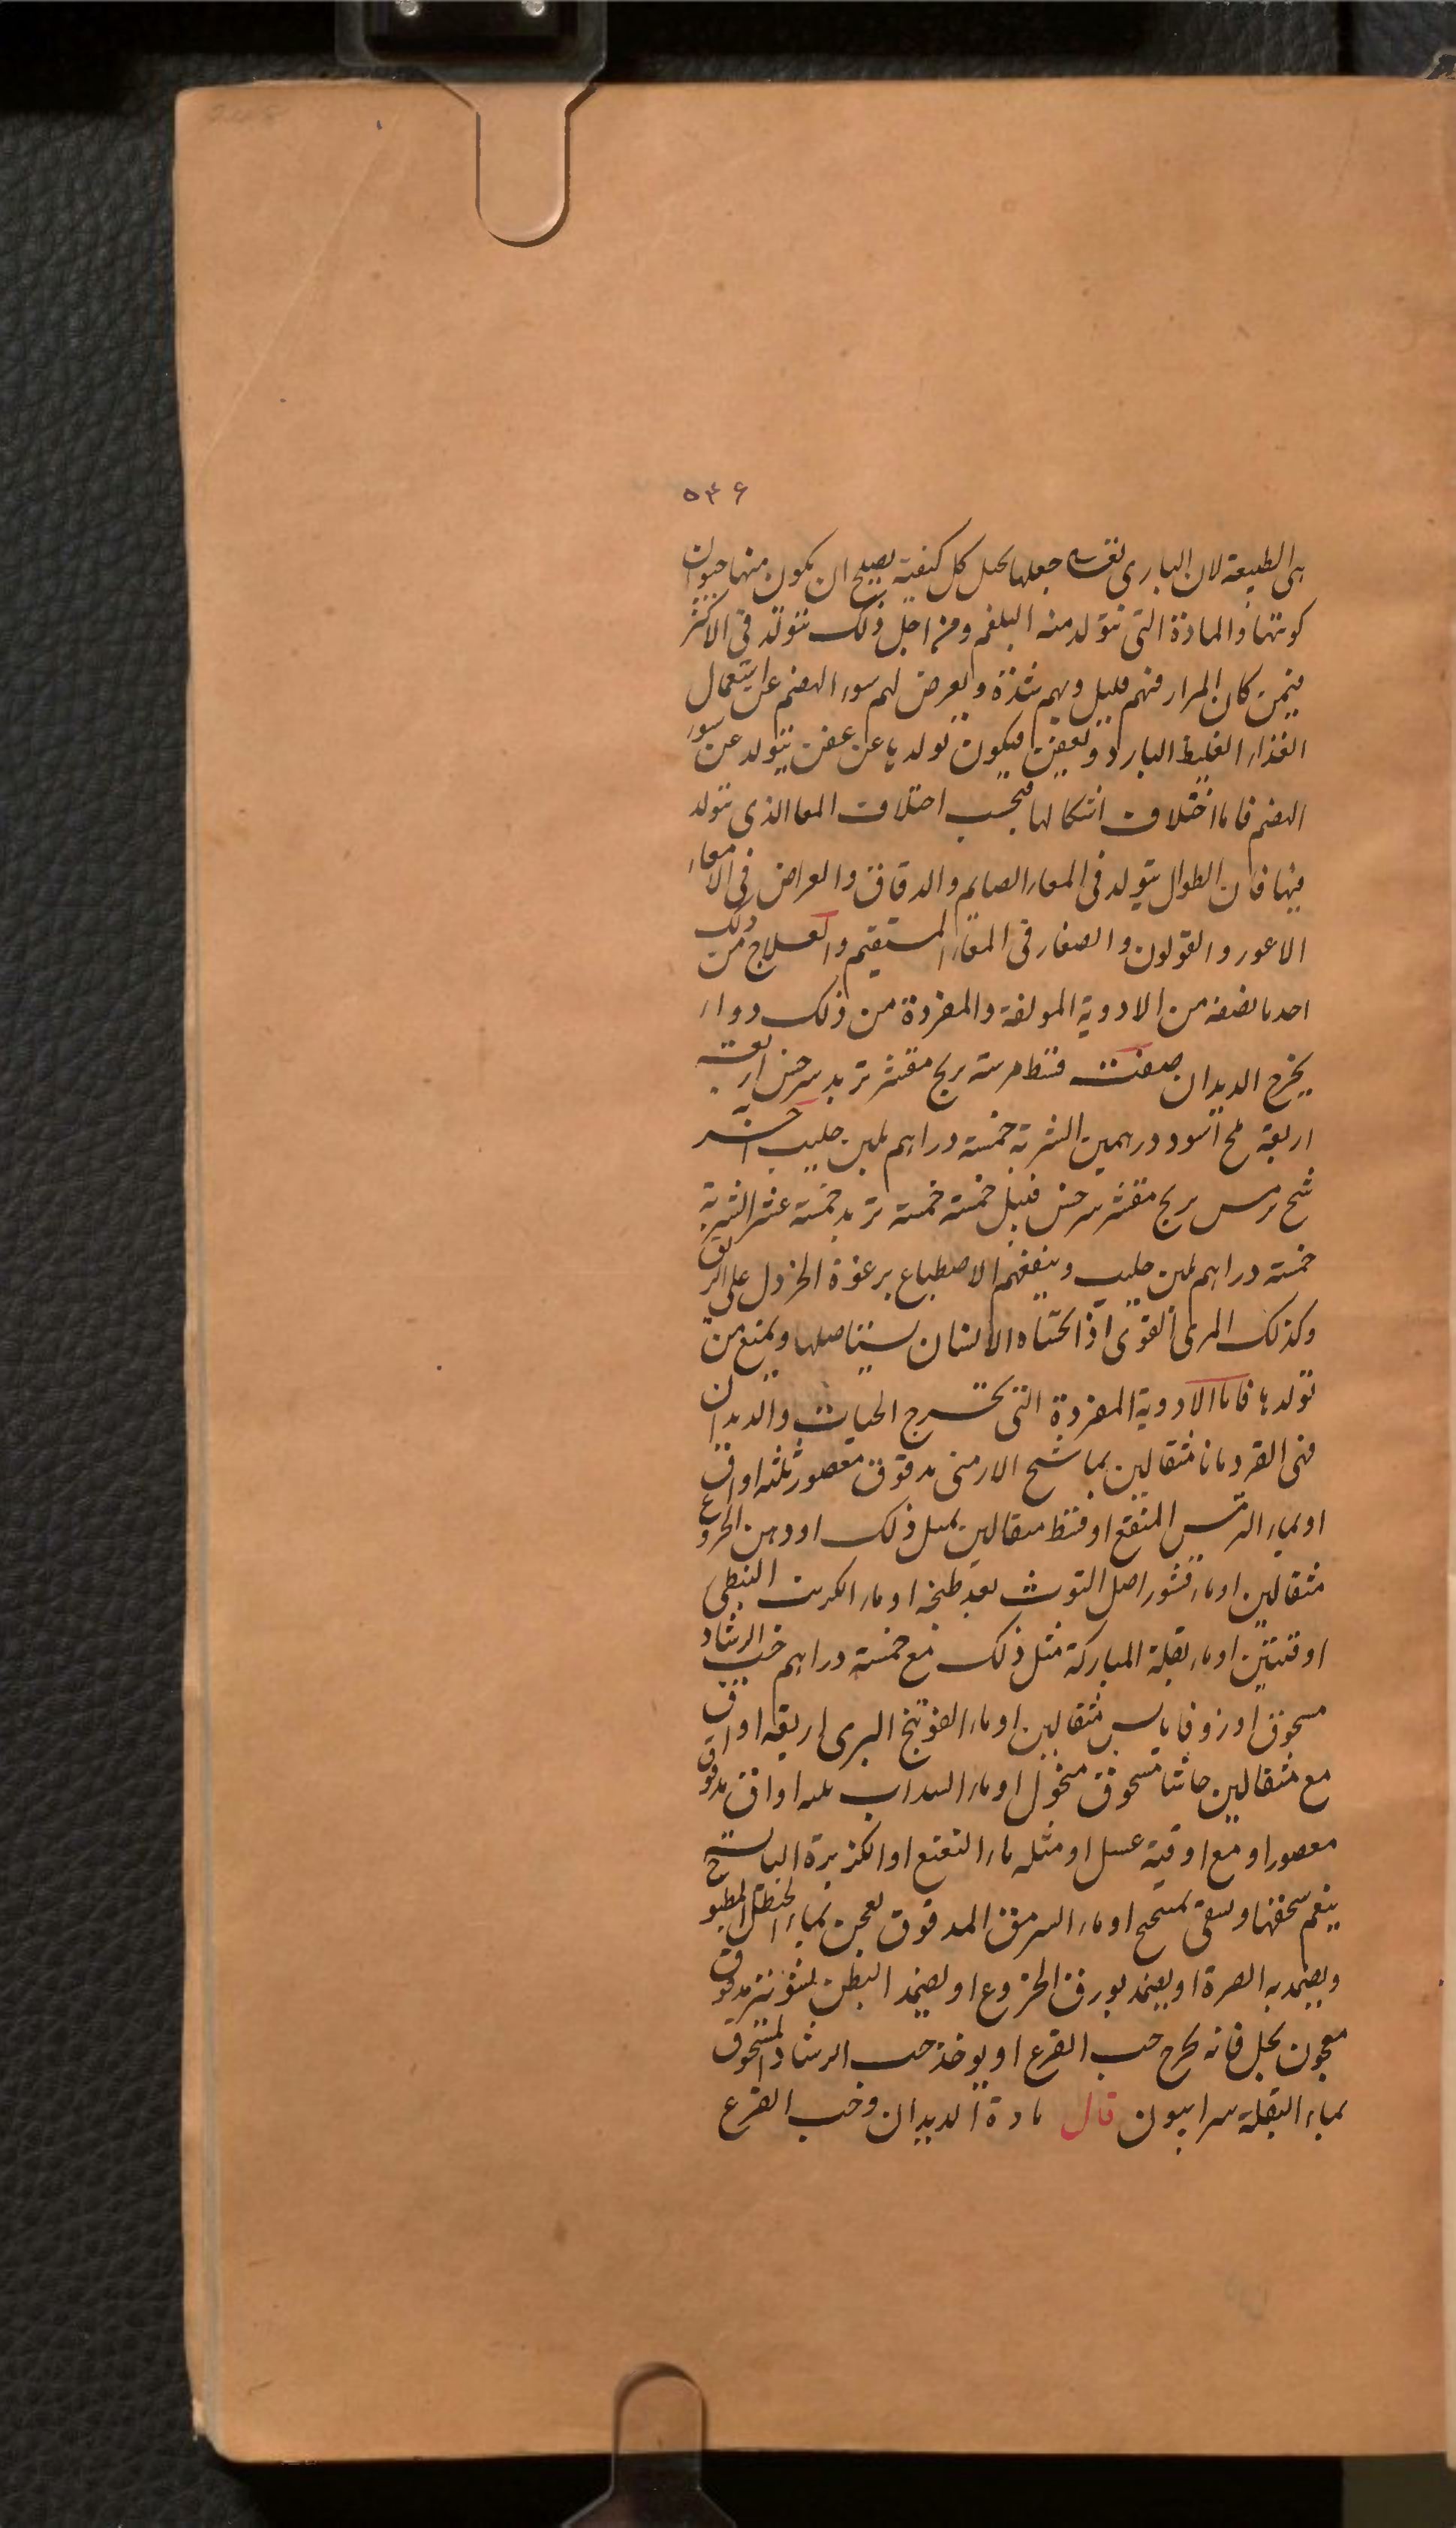 ۵۳۶
هى الطبيعة لان البارى تعالى جعلها بحيل كل كيفية يصلح ان يكون منها حيوان
كونتها والمادة التى تتولد منه البلغم ومن اجل ذلك تتولد فى الاكثر
فيمن كان المرار فيهم قليل وبهم شدة ويعرض لهم سوء الهضم عن استعمال
الغذاء الغليظ البارد وتعفن فيكون تولدها عن عفن يتولد عن سوء
الهضم فاما اختلاف اشكالها فبحسب اختلاف المعا الذى تتولد
فيها فان الطوال يتولد فى المعاء الصايم والدقاق والعراض فى الامعاء
الاعور والقولون والصغار فى المعاء المستقيم والعلاج من ذلك
احد ما نصفه من الادوية المولفة والمفردة من ذلك دواء
يخرج الديدان صفته قسط مر ستة برنج مقشر تربد سرخس اربعة
اربعة ملح اسود درهمين الشربة خمسة دراهم بلبن حليب اخر
شيح ترمس برنج مقشر سرخس قنبل خمسة خمسة تربد خمسة عشر الشربة
خمسة دراهم بلبن حليب وينفعهم الاصطباغ برغوة الخردل على الريق
وكذلك المرى القوى اذا تحساه الانسان يستاصلها ويمنع من
تولدها فاما الادوية المفردة التى تخرج الحيات والديدان
فهى القردمانا مثقالين بما شيح الارمنى مدقوق معصور ثلثة اواق
او بماء الترمس المنقع او قسط مثقالين بمثل ذلك او دهن الخروع
مثقالين او ماء قشور اصل التوث بعد طبخه او ماء الكرنب النبطى
اوقيتين او ماء بقلة المباركة مثل ذلك مع خمسة دراهم حب الرشاد
مسحوق او زوفا يابس مثقالين او ماء الفوتنج البرى اربعة اواق
مع مثقالين حاشا مسحوق منخول او ماء السداب ثلثه اواق مدقوق
معصور او مع اوقية عسل او مثله ماء النعنع او الكزبرة اليابسة
ينعم سحقها ويسقى بميبختج او ماء السرمق المدقوق يعجن بماء الحنظل المطبوخ
ويضمد به الصرة او يضمد بورق الخروع او يضمد البطن بشونيز مدقوق
معجون بخل فانه يخرج حب القرع او يوخذ حب الرشاد المسحوق
بماء البقلة سرابيون قال مادة الديدان وحب القرع